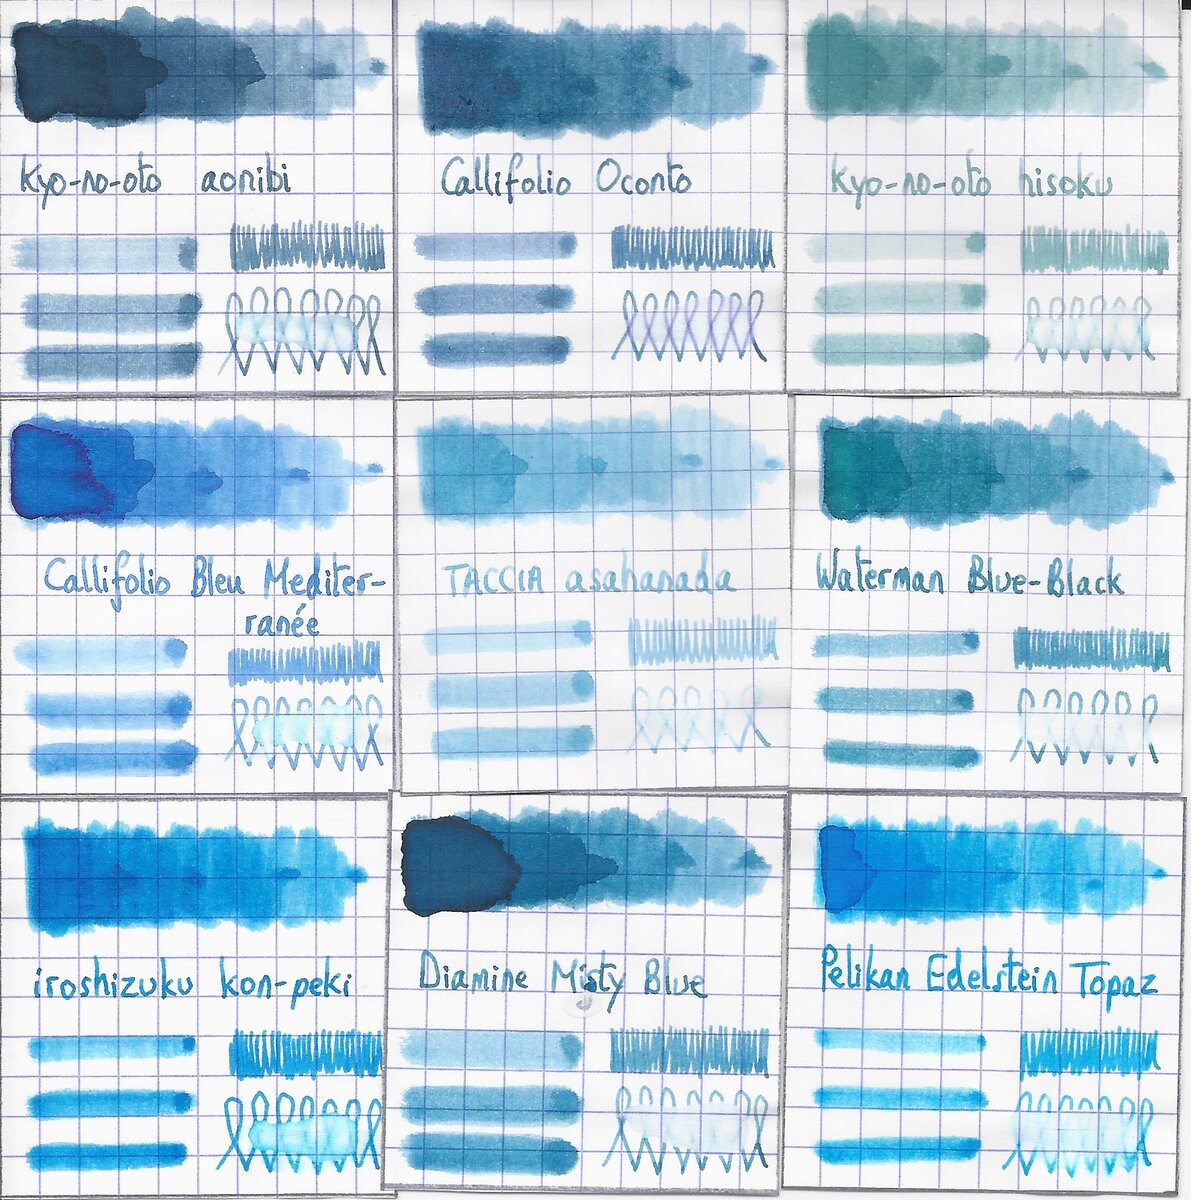 kyo-no-oto aonibi
Callifolio Oconto
kyo-no-oto hisoku
Callifolio Bleu Mediter-
ranée
TACCIA asahanada
Waterman Blue-Black
iroshizuku kon-peki
Diamine Misty Blue
Pelikan Edelstein Topaz